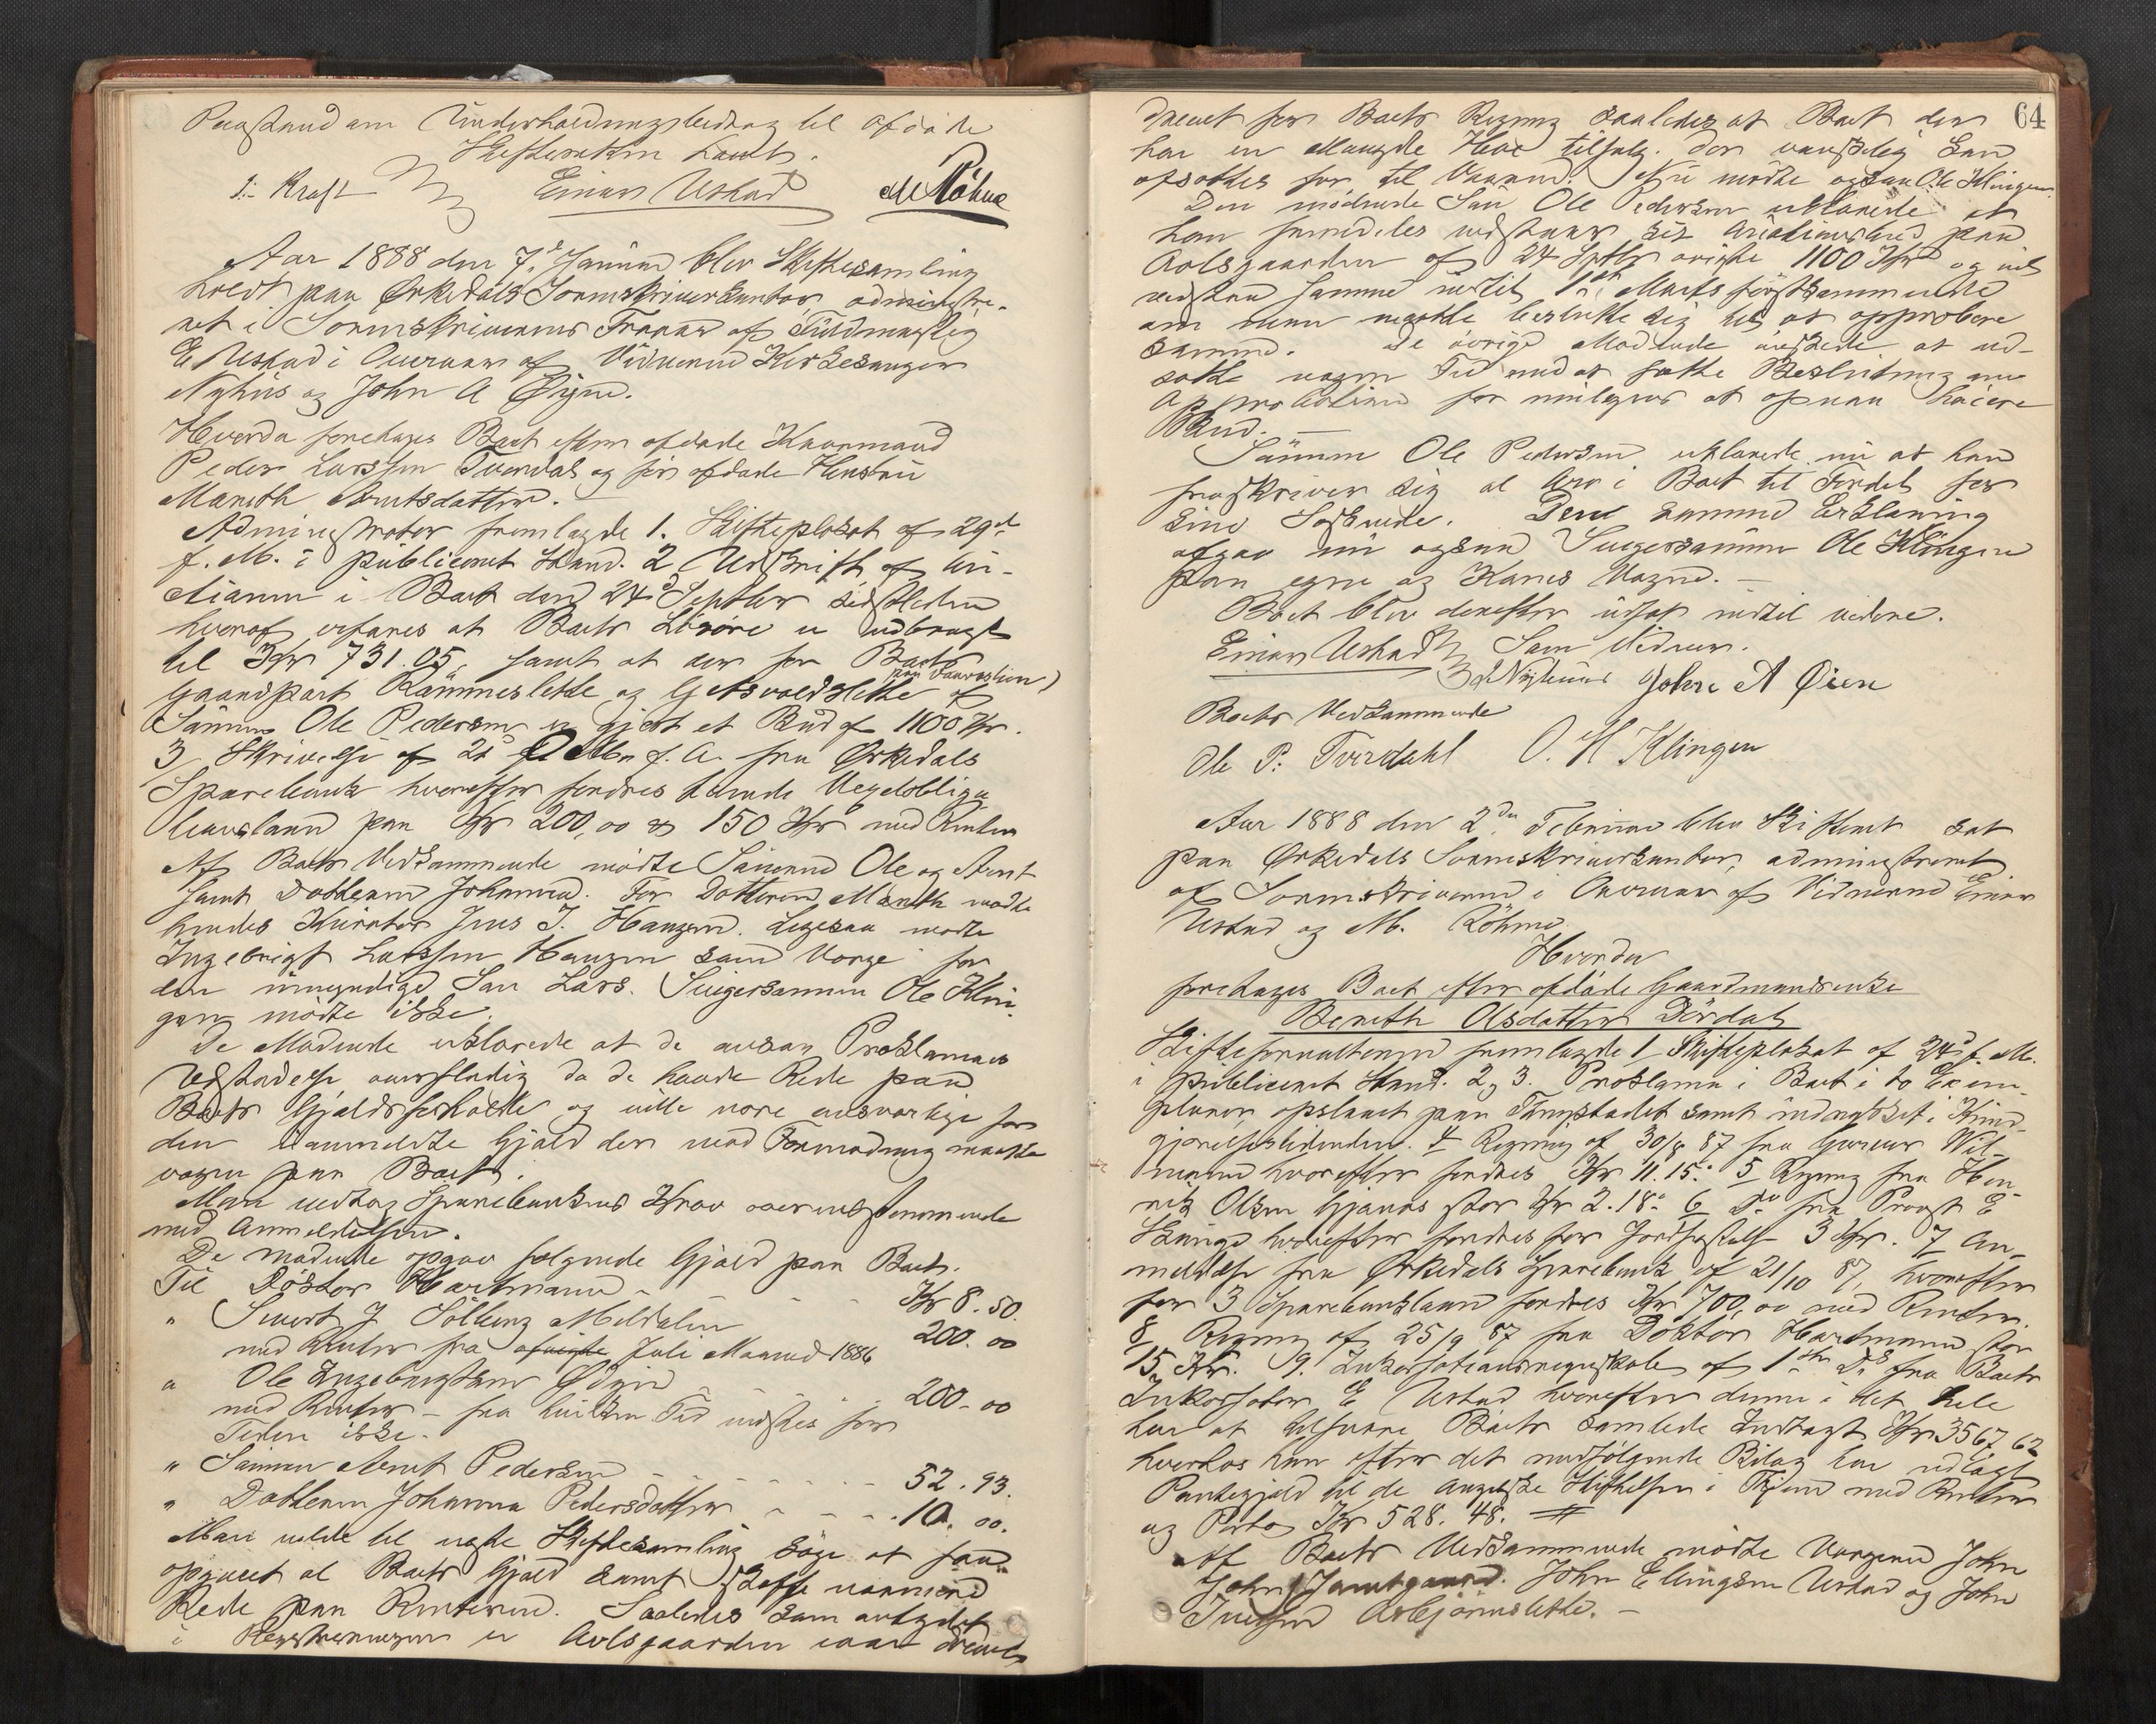 Paastand om Underholdningsbidrag til afdøde
Skifteretten hævet.
I: Kraft Einar Ustad M Röhme
Aar 1888 den 7de Januar blev Skiftesamling
holdt paa Ørkedals Sorenskriverkontor, administre-
ret i Sorenskriverens Fravær af Fuldmægtig
E Ustad i Overvær af Vidnerne Kirkesanger
Nyhus og John A Øyen.
Hvorda foretages Boet efter afdøde Kaarmand
Peder Larssen Tverdal og før afdøde Hustru
Mareth Arntsdatter.
Administrator fremlagde 1. Skifteplakat af 29de
f. M. i publiceret Stand. 2 Udskrift af Au-
ctionen i Boet den 24de Septbr sidstleden
hvoraf erfares at Boets Løsøre er udbragt
til Kr 731.05, samt at der for Boets
paa Auvastien)
Gaardpart Rømmesletten og Getsvoldslette af
Sønnen Ole Pedersen er gjort et Bud af 1100 Kr.
3 Skrivelse af 21 Oktbr f. A. fra Ørkedals
Sparebank hvorefter fordres tvende Vexelobliga
tionslaan paa Kr 200,00 & 150 Kr med Renter
Af Boets Vedkommende mødte Sønnerne Ole og Arnt
samt Datteren Johanna. For Datteren Mareth mødte
hendes Kurator Jens J. Haugen. Ligesaa mødte
Ingebrigt Larssen Haugen som Værge for
den umyndige Søn Lars. Svigersønnen Ole Klin-
gen mødte ikke.
De Mødende erklærede at de ansaa Proklamas
Udstedelse overflødig da de havde Rede paa
Boets Gjældsforholde og ville være ansvarlige for
den uanmeldte Gjæld der mod Formodning maatte
være paa Boet.
Man vedtog Sparebankens Krav overensstemmende
med Anmeldelsen.
De mødende opgav følgende Gjæld paa Boet.
Til Doktor Hartmann - - - Kr 8.50.
" Sivert J Solberg Meldalen 200.00
med Renter fra Juli Maaned 1886
" Ole Ingebrigtsen Ødegrd - - - 200.00
med Renter - fra hvilken Tid vidstes for
Tiden ikke.
" Sønnen Arnt Pedersen - - - - - - 52.93.
" Datteren Johanna Pedersdatter - - - - 10.00.
Man vilde til næste Skiftesamling søge at faa
opgivet al Boets Gjæld samt skaffe nærmere
Rede paa Renterne. Saaledes som antydet
i Registreringen er Avlsgaarden iaar drevet
64
drevet for Boets Regning saaledes at Boet der
har en Mængde Hø tilsalg. der vanskelig kan
afsættes før til Vaaren. Nu mødte ogsaa Ole Klingen
Den mødende Søn Ole Pedersen erklærede at
han fremdeles vedstaar sit Auctionsbud paa
Avlsgaarden af 24 Septbr avigte 1100 Kr og vil
vedstaa samme indtil 1ste Marts førstkommende
om man maatte beslutte sig til at approbere
samme. De øvrige Mødende ønskede at ud-
sætte nogen Tid med at fatte Beslutning om
Approbation for muligens at opnaa høiere
Bud. -
Sønnen Ole Pedersen erklærede nu at han
fraskriver sig al Arv i Boet til Fordel for
sine Søskende. Den samme Erklæring
afgav nu ogsaa Svigersønnen Ole Klingen
paa egne og Kones Vegne. -
Boet blev derefter udsat indtil videre.
Einar Ustad Som Vidner.
Nyhuus John A Øien
Boets Vedkommende
Ole P. Tverdahl O. H Klingen
Aar 1888 den 2den Februar blev Skifteret sat
paa Ørkedals Sorenskriverkontor, administreret
af Sorenskriveren i Overvær af Vidnerne Einar
Ustad og M. Röhme
Hvorda
foretages Boet efter afdøde Gaardmandsenke
Bereth Olsdatter Dørdal
Skifteforvalteren fremlagde 1 Skifteplakat af 24de f. M.
i publiceret Stand. 2 & 3. Proklama i Boet i to Exem-
plarer, opslaaet paa Thingstedet samt indrykket i Kund-
gjørelsestidenden. 4 Regning af 30/8 87 fra Garver Wil-
mann hvorefter fordres Kr 11.15. 5 Regning fra Hen-
rik Olsen Gjønnes stor Kr 2.18. 6 Do fra Provst E
Skunge hvorefter fordres for Jordfæstelse 3 Kr. 7 An-
meldelse fra Ørkedals Sparebank af 21/10 87, hvorefter
for 3 Sparebanklaan fordres Kr 700,00 med Renter.
8 Regning af 25/9 87 fra Doktor Hartmann stor
15 Kr. 9. Inkassationsregnskab af 1ste Ds fra Boets
Inkassator E Ustad hvorefter denne i det hele
har at tilsvare Boets samlede Indtægt Kr 3567,62
hvorhos han efter det medfølgende Bilag har udlagt
Pantegjæld til de angelske Stiftelser i Thjem med Renter
og Porto Kr 528.48. #
Af Boets Vedkommende mødte Værgerne John
John Jamtgaard. John Ellingsen Ustad og John
Iversen Asbjørnslette. -